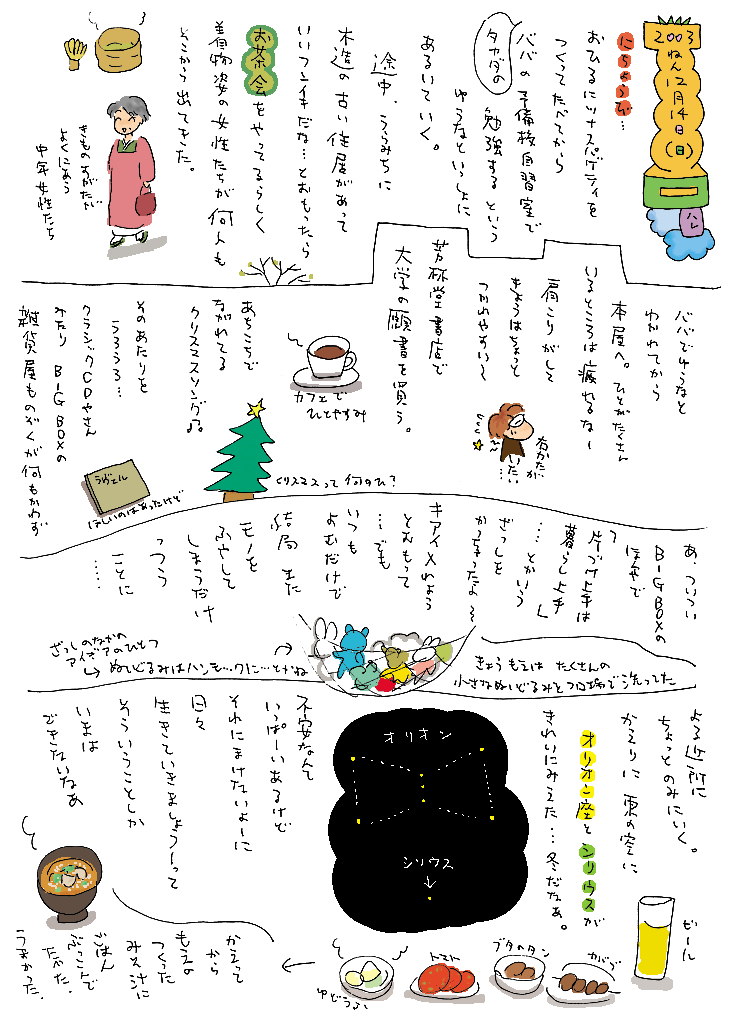 2003ねん12月14日(日)
ハレ
にちようび…
おひるにツナスパゲティを
つくってたべてから
ババの予備校自習室で
タカダの
勉強するという
ゆうなといっしょに
あるいていく。
途中、うらみちに
木造の古い住居があって
いいフンイキだな…とおもったら
お茶会をやってるらしく
着物姿の女性たちが何人も
そこから出てきた。
きものすがたが
よくにあう
中年女性たち
ババでゆうなと
わかれてから
本屋へ。ひとがたくさん
いるところは疲れるなー
肩こりがして
きょうはちょっと
つかれやすい〜
右かたが
いたい…
芳林堂書店で
大学の願書を買う。
カフェで
ひとやすみ
あちこちで
ながれてる
クリスマスソング♫。
クリスマスって何のひ?
そのあたりを
うろうろ…
クラシックCDやさん
みたり BIGBOXの
雑貨屋ものぞくが何もかわず
ラヴェル
ほしいのはあったけど
あ、ついつい
BIGBOXの
ほんやで
「片づけ上手は
暮らし上手」
…とかいう
ざっしを
かっちゃったよ〜
キアイ入れよう
とおもって
…でも
いつも
よむだけで
結局 また
モノを
ふやして
しまうだけ
っつう
ことに
……
ざっしのなかの
アイデアのひとつ
↪ぬいぐるみはハンモックに…とかね
きょう もえは たくさんの
小さなぬいぐるみをフロ場で洗ってた
よる近所に
ちょっとのみにいく。
かえりに 東の空に
オリオン座とシリウスが
きれいにみえた…冬だなあ。
オリオン
シリウス
不安なんて
いっぱーいあるけど
それにまけないよーに
日々
生きていきましょう〜って
そういうことしか
いまは
できないなあ
ビール
カバブ
ブタのタン
トマト
ゆどうふ
かえって
から
もえの
つくった
みそ汁に
ごはん
ぶっこんで
たべた。
うまかった。